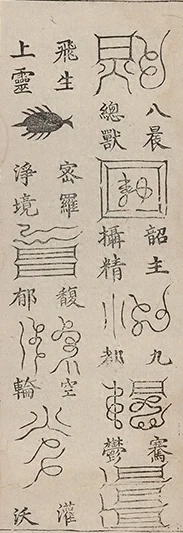 八晨 韶主 九 騫
總獸 攝精 都 鬱
飛生 密羅 馥 空 灌
上靈 淨境 郁 輪 沃